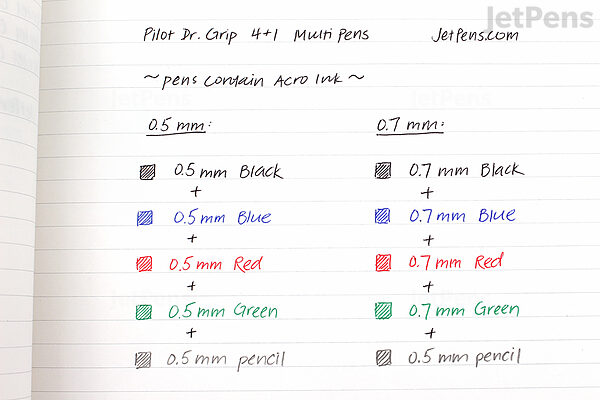 JetPens
Pilot Dr. Grip 4+1 Multi Pens JetPens.com
~ pens contain Acro Ink ~
JetPens JetPens
0.5 mm: 0.7 mm:
0.5 mm Black 0.7 mm Black
+ +
0.5 mm Blue 0.7 mm Blue
+ +
0.5 mm Red 0.7 mm Red
+ +
0.5 mm Green 0.7 mm Green
+ +
0.5 mm pencil 0.5 mm pencil